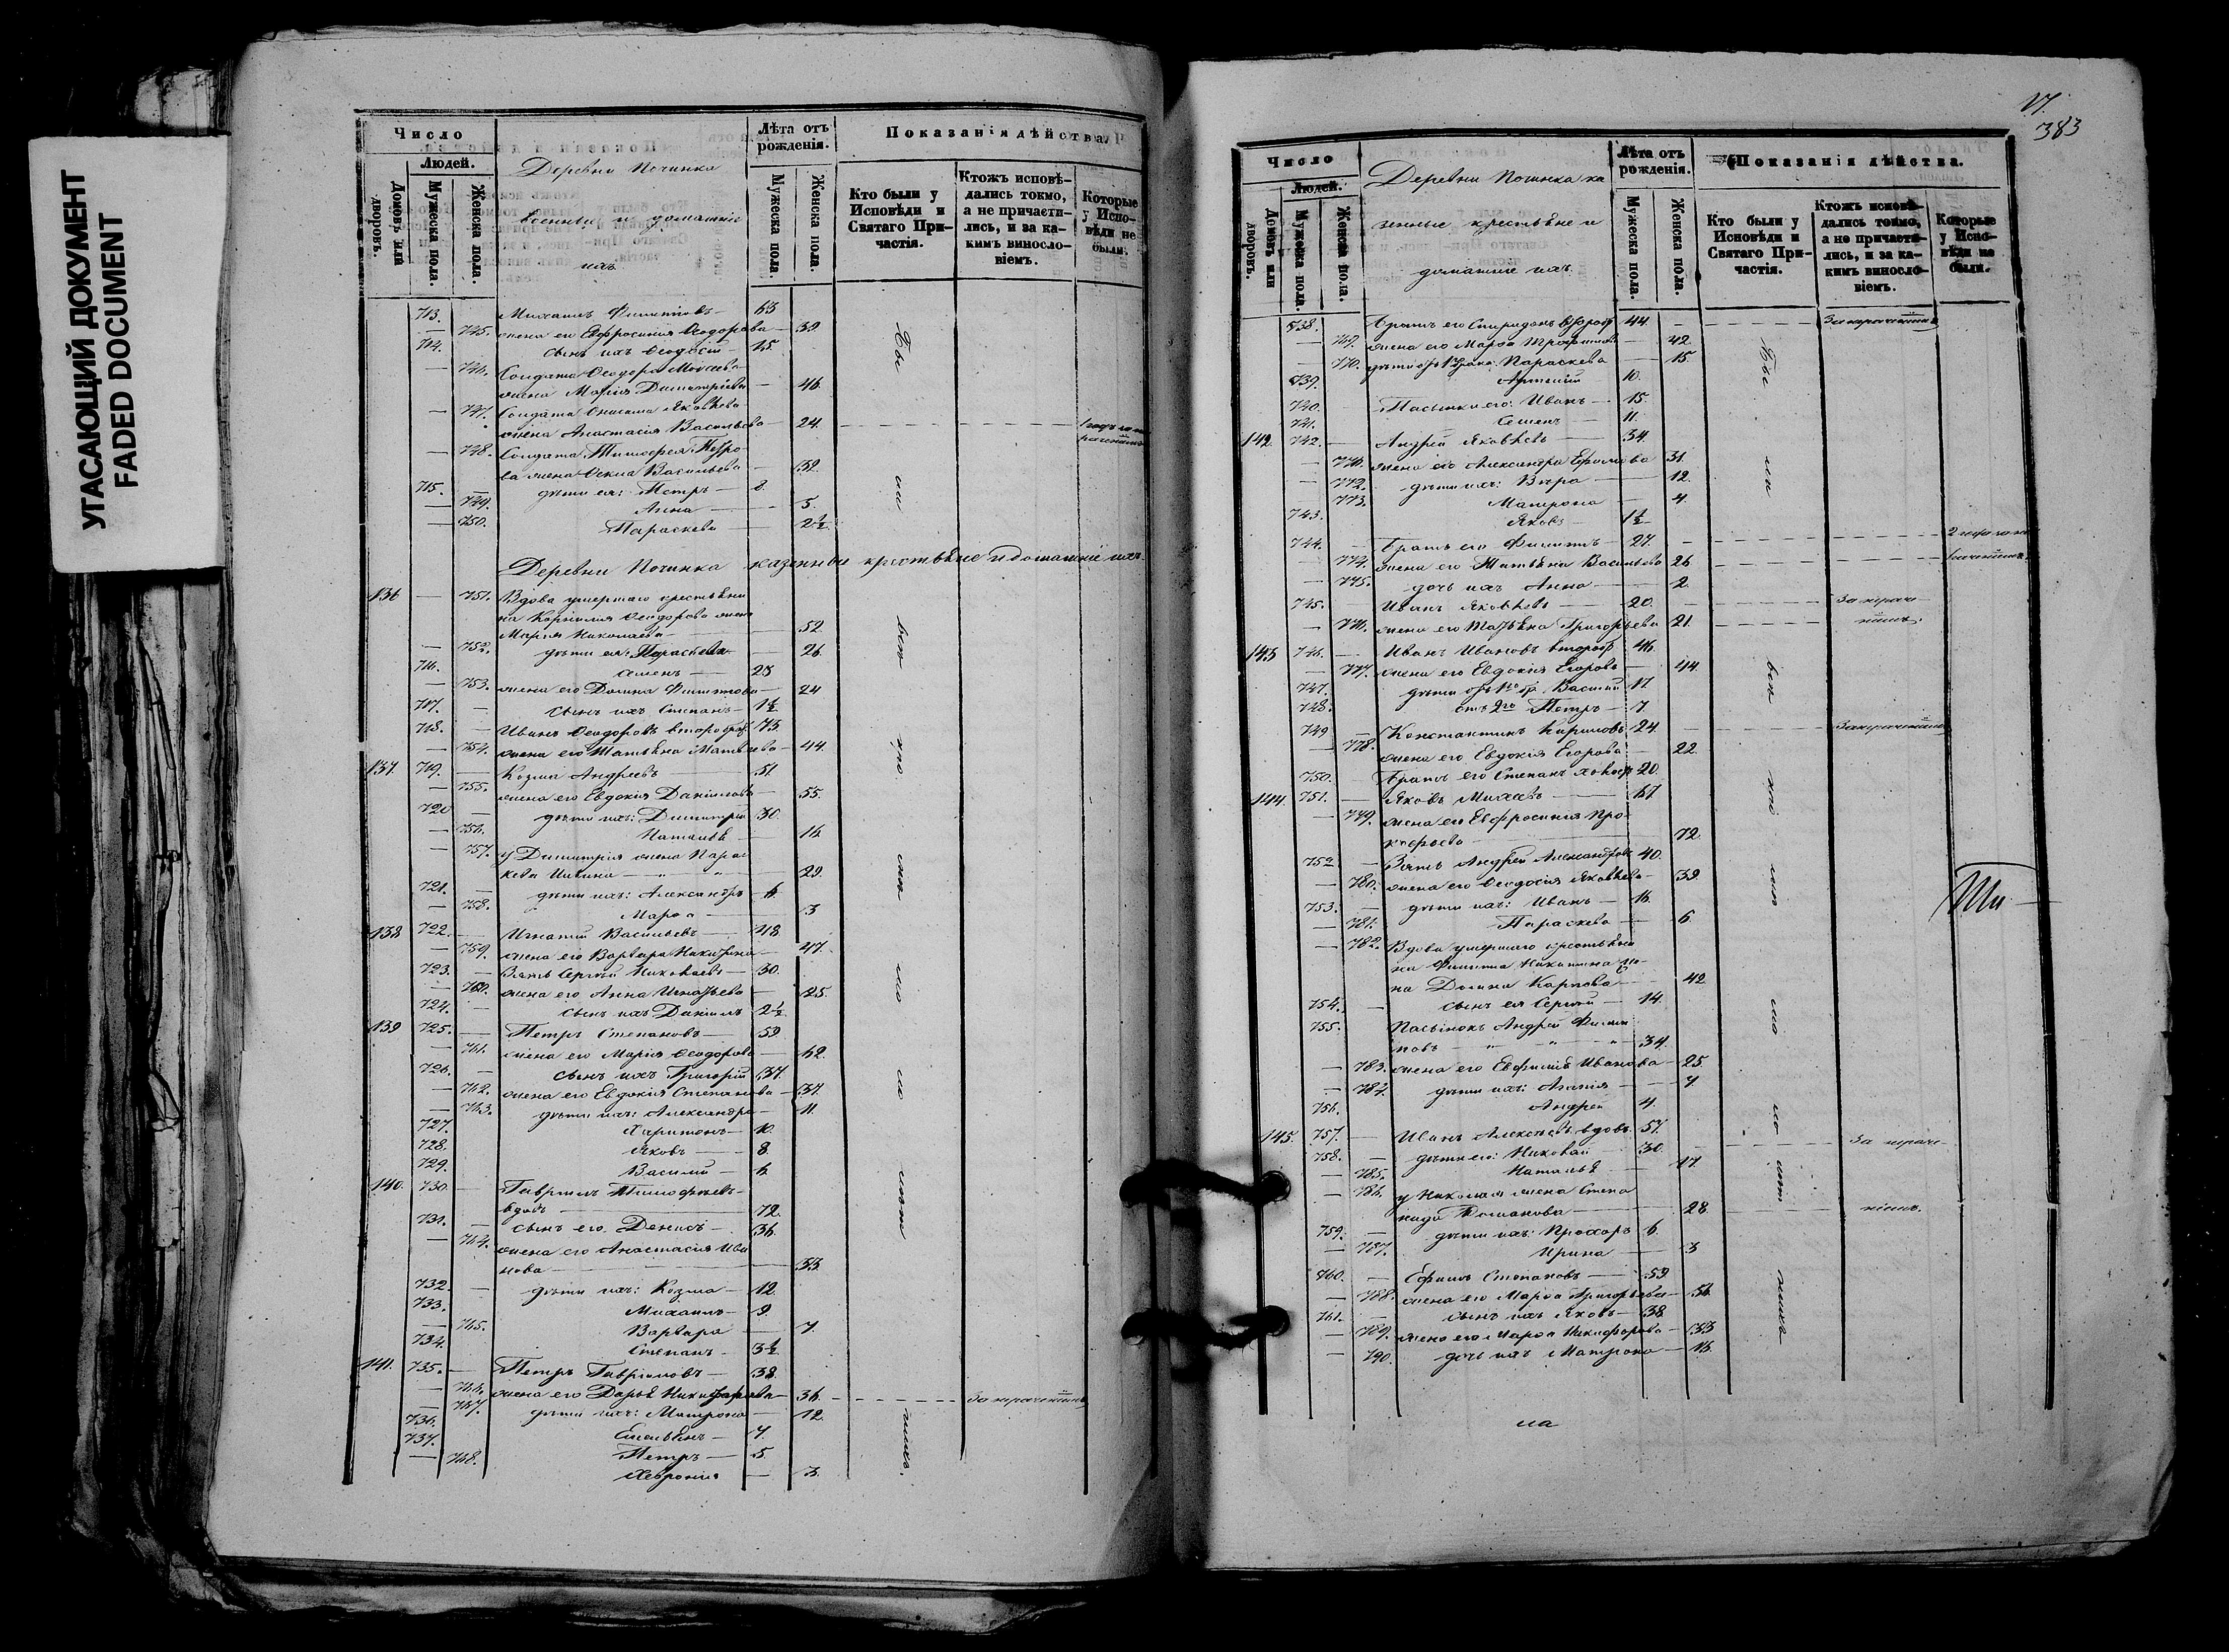 УГАСАЮЩИЙ ДОКУМЕНТ
FADED DOCUMENT
Число
Людей.
Домовъ или дворовъ.
Мужеска пола.
Женска пола.
Деревни Починка
военные и домашніе
ихъ
Лѣта отъ рожденія.
Мужеска пола.
Женска пола.
Показанія дѣйства.
Кто были у Исповѣди и Святаго Причастія.
Ктожъ исповѣдались токмо, а не причастились, и за какимъ винословіемъ.
Которые у Исповѣди не были.
713. Михаилъ Филипповъ — 63
— 745. жена его Евфросинія Ѳеодорова — 39
714. сынъ ихъ Ѳеодосій — 15.
— 746. Солдата Ѳеодора Моѵсеева
жена Марія Димитріева — 46.
— 747. Солдата Яковлева
жена Анастасія Васильева — 24.
— 748. Солдата Тимоѳея Петро-
ва жена Ѳекла Васильева — 32.
715. дѣти ея: Петръ — 8.
— 749. Анна — 5.
— 750. Параскева — 2½
Деревни Починка казенные крестьяне и домашніе ихъ
136 — 751. Вдова умершаго крестьяни
на Корнилія Ѳеодорова жена
Марія Николаева — 52
— 752. дѣти ея: Параскева — 26.
716. Семенъ — 28
— 753. жена его Домна Филиппова — 24
717. — сынъ ихъ Степанъ — 1½
718. — Иванъ Ѳеодоровъ второбр. 73.
— 754. жена его Татьяна Матвѣева — 44.
137. 719. — Козма Андреевъ — 51
— 755. жена его Евдокія Даніилова — 55.
720 — дѣти ихъ: Димитрій 30.
— 756. Наталья — 16.
— 757. у Димитрія жена Парас
кева — 29.
721. — дѣти ихъ: Александръ 6.
— 758. Марѳа — 3
138 722. — Игнатій Васильевъ — 48
— 759. жена его Варвара Никитина — 47.
723. — Зять Сергій Николаевъ — 30.
— 760. жена его Анна Игнатьева — 25.
724. — сынъ ихъ Даніилъ 2½
139 725. — Петръ Степановъ — 59.
— 761. жена его Марія Ѳеодорова — 62.
726. — сынъ ихъ Григорій 37.
— 762. жена его Евдокія Степанова — 37.
— 763. дѣти ихъ: Александра — 11.
727. Харитонъ — 10.
728. Яковъ — 8.
729. Василій — 6
140. 730. — Гавріилъ Тимоѳеевъ
вдовъ — 72.
731. — сынъ его Денисъ — 36.
— 764. жена его Анастасія Ива
нова — 33.
732. — дѣти ихъ: Козма — 12.
733. Михаилъ — 9
— 765. Варвара — 7.
734. Степанъ — 3½
141. 735. — Петръ Гавриловъ — 38.
— 766. жена его Дарья Никифорова — 36. За нераченіемъ
— 767. дѣти ихъ: Матрона — 12.
736. Емельянъ — 7.
737. Петръ — 5.
— 768. Хевронія — 3.
383
Число
Людей.
Домовъ или дворовъ.
Мужеска пола.
Женска пола.
Деревни Починка ка
зенные крестьяне и
домашніе ихъ.
Лѣта отъ рожденія.
Мужеска пола.
Женска пола.
Показанія дѣйства.
Кто были у Исповѣди и Святаго Причастія.
Ктожъ исповѣдались токмо, а не причастились, и за какимъ винословіемъ.
Которые у Исповѣди не были.
738. Братъ его Спиридонъ второбр. 44. — За нераченіемъ
— 769. жена его Марѳа Трофимова — 42.
— 770. Параскева — 15.
739. Артемій 10.
740. Пасынки его: Иванъ — 15.
741. Семенъ — 11.
142. 742. — Андрей Яковлевъ — 34.
— 771. жена его Александра Ефимова 31.
— 772. дѣти ихъ: Вѣра — 12.
— 773. Матрона — 4.
743. Яковъ — 1½
744. — Братъ его Филиппъ — 27.
— 774. жена его Татьяна Васильева 26
— 775. дочь ихъ Анна — 2.
745. — Иванъ Яковлевъ — 20. За нераче-
— 776. жена его Татьяна Григорьева 21. ніемъ.
143 746. — Иванъ Ивановъ второбр. 46.
— 777. жена его Евдокія Егорова — 44.
747. Василій 17.
748. отъ 2го Петръ — 7
749 — Константинъ Кириловъ 24. За нераченіемъ
— 778. жена его Евдокія Егорова — 22.
750. Братъ его Степанъ холост 20.
144. 751. — Яковъ Михеевъ — 67
— 779. жена его Евфросинія Про-
кофьева — 72.
752 — Зять Андрей Александровъ 40.
— 780. жена его Ѳеодосія Яковлева — 39.
753. — дѣти ихъ: Иванъ — 16.
— 781. Параскева — 6.
— 782. Вдова умершаго крестьяни
на Филиппа Никитина же-
на Домна Карпова — 42
754. — сынъ ея Сергій — 14.
755. Пасынокъ Андрей Филип
повъ — 34.
— 783. жена его Евфимія Иванова — 25.
— 784. дѣти ихъ: Агапія — 7.
756. Андрей 4.
145. 757. — Иванъ Алексѣевъ вдовъ 57.
758. — дѣти его: Николай — 30. За нераче-
— 785. Наталья — 17.
— 786. у Николая жена Степа
нида Романова — 28. ніемъ.
759. — дѣти ихъ: Прохоръ 6.
— 787. Ирина — 3
760. — Ефимъ Степановъ — 59
— 788. жена его Марѳа Григорьева — 56.
761. — сынъ ихъ Яковъ — 38.
— 789. жена его Марѳа Никифорова — 33
— 790. дочь ихъ Матрона — 16.